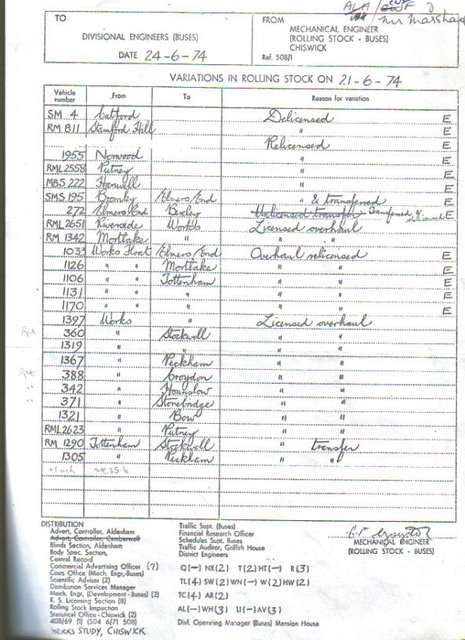 ALM
Mr Marshall
TO
DIVISIONAL ENGINEERS (BUSES)
DATE 24-6-74
FROM
MECHANICAL ENGINEER
(ROLLING STOCK - BUSES)
CHISWICK
Ref. 508/1
VARIATIONS IN ROLLING STOCK ON 21-6-74
Vehicle number From To Reason for variation
SM 4 Catford Delicensed E
RM 811 Stamford Hill " E
Relicensed E
1955 Norwood " E
RML 2558 Putney " E
MBS 222 Hanwell " E
SMS 195 Bromley Elmers/End " & transferred E
272 Elmers/End Bexley Unlicensed transfer Transferred & delicensed E
RML 2651 Riverside Works Licensed overhaul
RM 1342 Mortlake " " " E
1033 Works Float Elmers/End Overhaul relicensed E
1126 " " Mortlake " " E
1106 " " Tottenham " " E
1131 " " " " " E
1170 " " " " " E
1397 Works " Licensed overhaul
Rpt 360 " Stockwell " "
1319 " " " "
1367 " Peckham " "
Rpt 388 " Croydon " "
" 342 " Hounslow " "
" 371 " Stonebridge " "
1321 " Bow " "
RML 2623 " Putney " "
RM 1290 Tottenham Stockwell " transfer
1305 " Peckham " "
DISTRIBUTION
Advert. Controller, Aldenham
Advert. Controller, Camberwell
Blinds Section, Aldenham
Body Spec. Section,
Central Record
Commercial Advertising Officer (7)
Costs Office (Mech. Engr. Buses)
Scientific Adviser (2)
Distribution Services Manager
Mech. Engr. (Development - Buses) (2)
R. S. Licensing Section (8)
Rolling Stock Inspection
Statistical Office - Chiswick (2)
408/69 (1) (504 6/71 508)
WORKS STUDY, CHISWICK
Traffic Supt. (Buses)
Financial Research Officer
Schedules Supt. Buses
Traffic Auditor, Griffith House
District Engineers
Q(-) NX(2) T(2) HT(-) R(3)
TL(4) SW(2) WN(-) W(2) HW(2)
TC(4) AR(2)
AL(-) WH(3) U(-) AV(3)
Divl. Operating Manager (Buses) Mansion House
MECHANICAL ENGINEER
(ROLLING STOCK - BUSES)